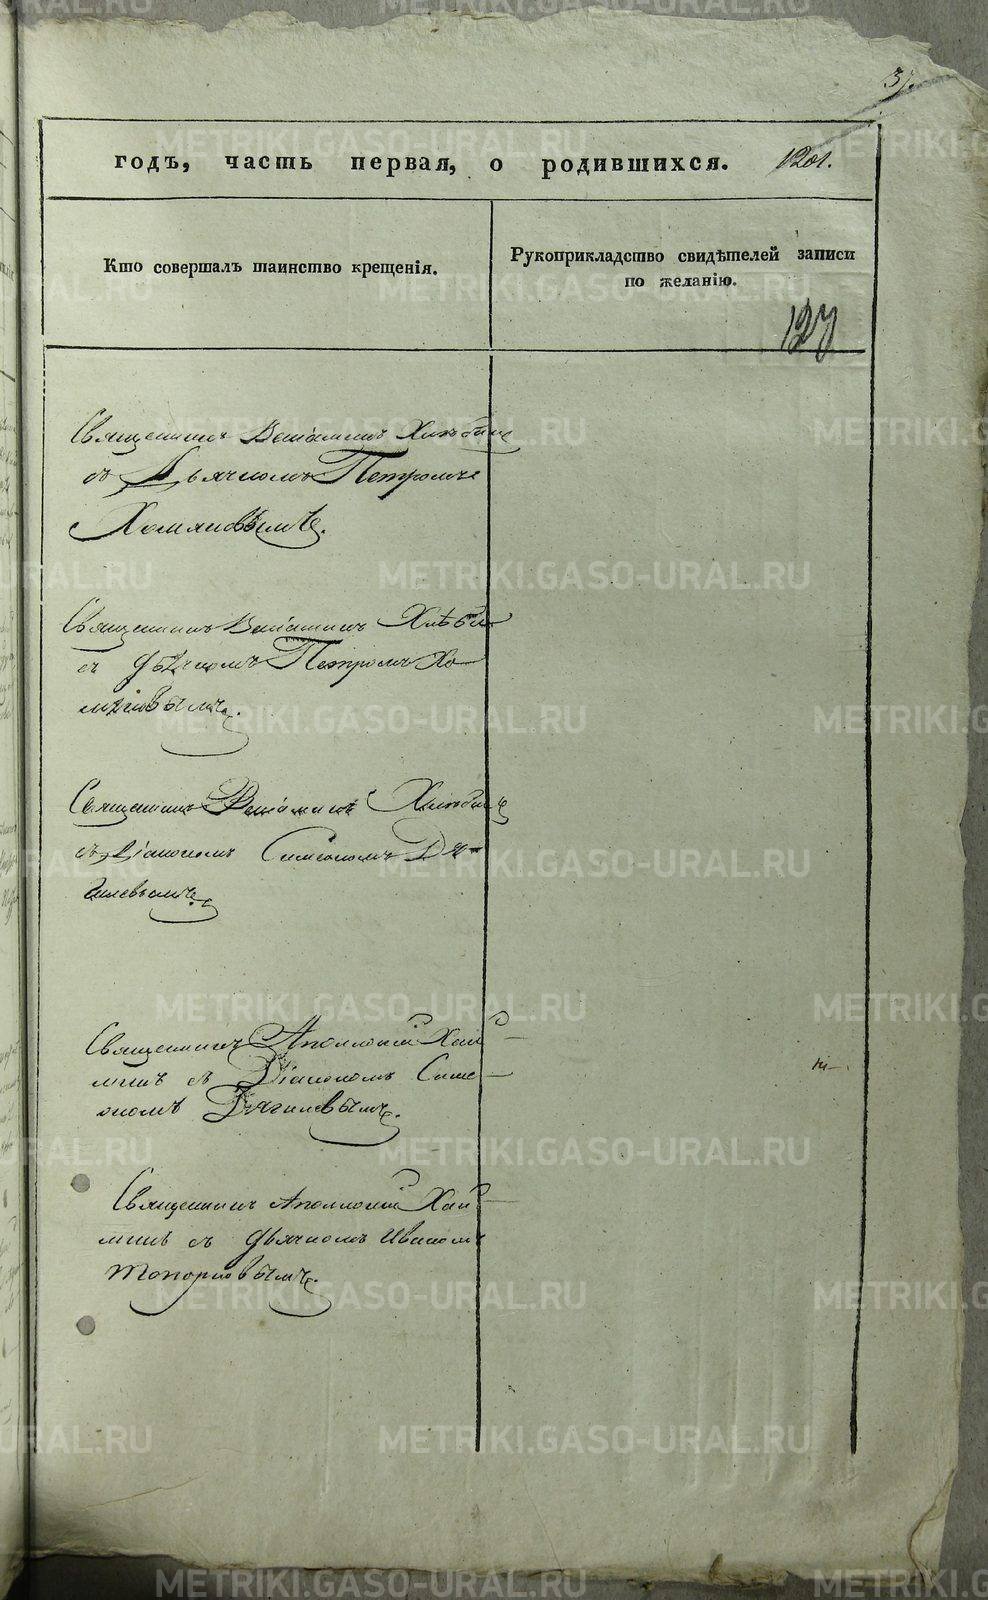 годъ, часть первая, о родившихся. 1201.
Кто совершалъ таинство крещенія.
Рукоприкладство свидѣтелей записи
по желанію.
127
Священникъ Веніаминъ Хлѣбин
съ Дьячкомъ Петромъ
Хомяковымъ.
Священникъ Веніаминъ Хлѣбин
съ дьячкомъ Петромъ Хо
мяковымъ.
Священникъ Веніаминъ Хлѣбин
съ Діакономъ Симеономъ Дя-
гилевымъ.
Священникъ Аполлоній Хай
минъ съ Діакономъ Симе
ономъ Дягилевымъ.
Священникъ Аполлоній Хай
минъ съ дьячкомъ Иваномъ
Топорковымъ.
METRIKI.GASO-URAL.RU